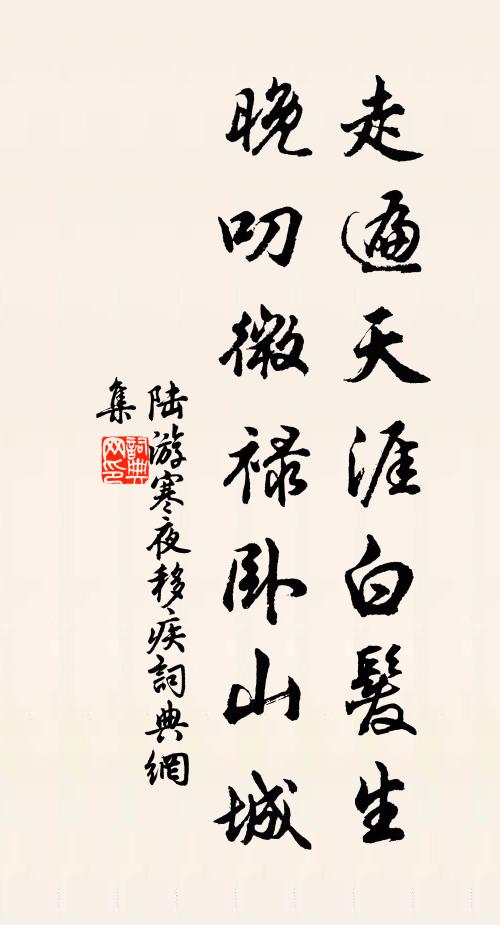 走遍天涯白髮生
晚叨微禄卧山城
陆游寒夜移疾詞典網
集
詞典网印